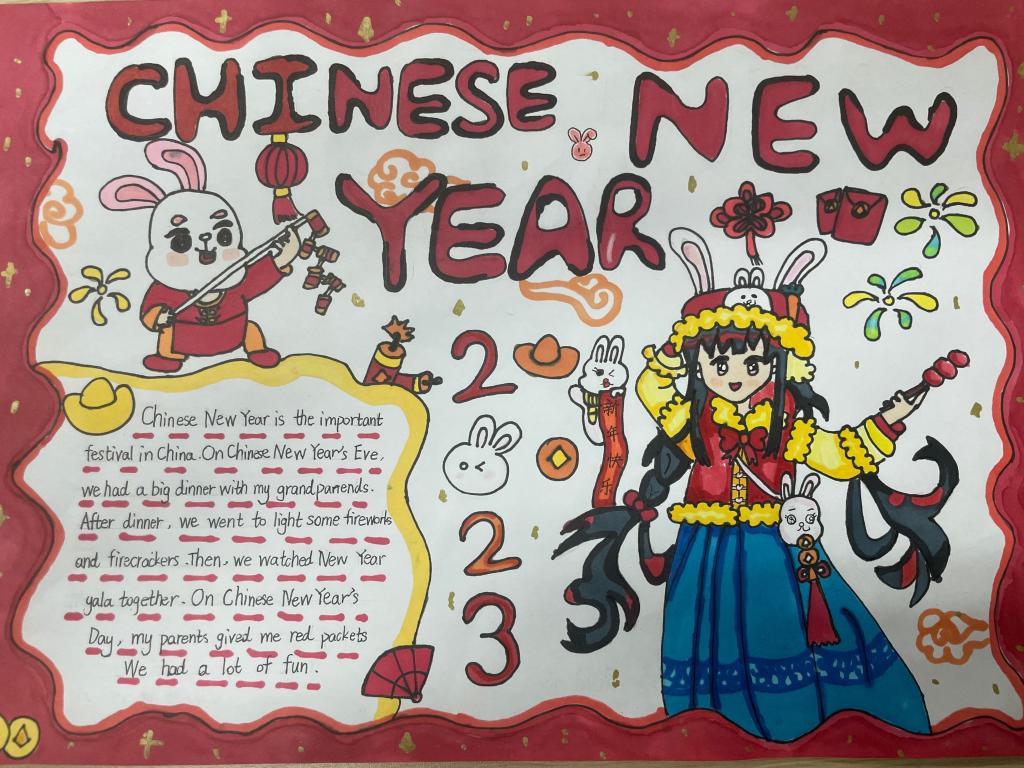 CHINESE NEW
YEAR
2
0
2
3
新年快乐
Chinese New Year is the important
festival in China. On Chinese New Year's Eve,
we had a big dinner with my grandparrends.
After dinner, we went to light some fireworks
and firecrackers. Then, we watched New Year
gala together. On Chinese New Year's
Day, my parents gived me red packets
We had a lot of fun.